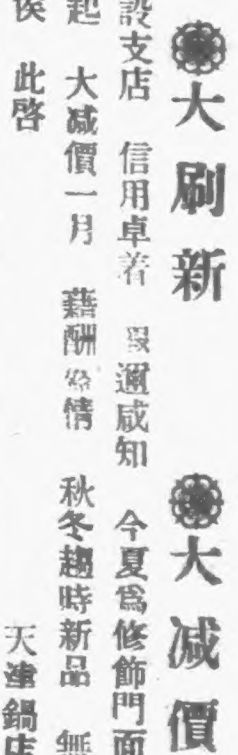 大刷新 大減價
設支店 信用卓着 遐邇咸知 今夏爲修飾門面
起 大減價一月 藉酬 情 秋冬趨時新品 無
俟 此啓 天 鍋店